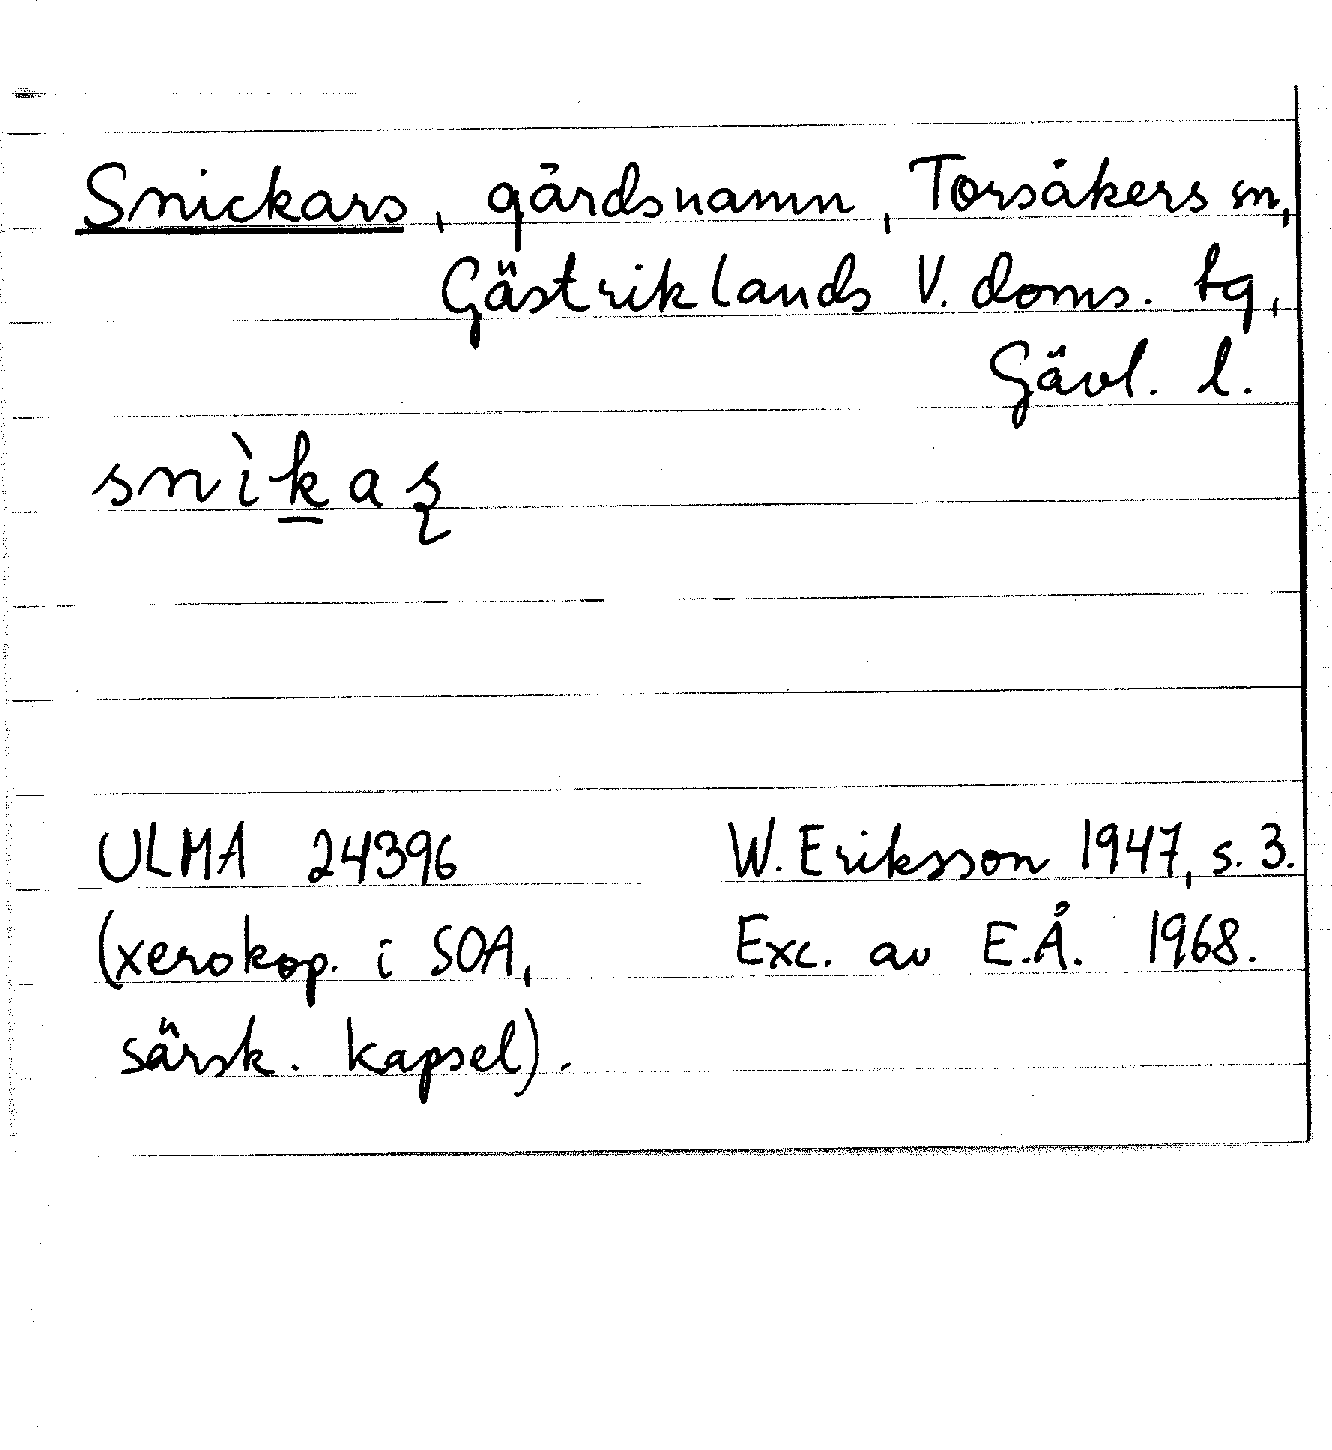 Snickars, gårdsnamn, Torsåkers sn,
Gästriklands V. doms. tg,
Gävl. l.
snìk̲aʂ
ULMA 24396 W. Eriksson 1947, s. 3.
(xerokop. i SOA, Exc. av E.Å. 1968.
särsk. kapsel).